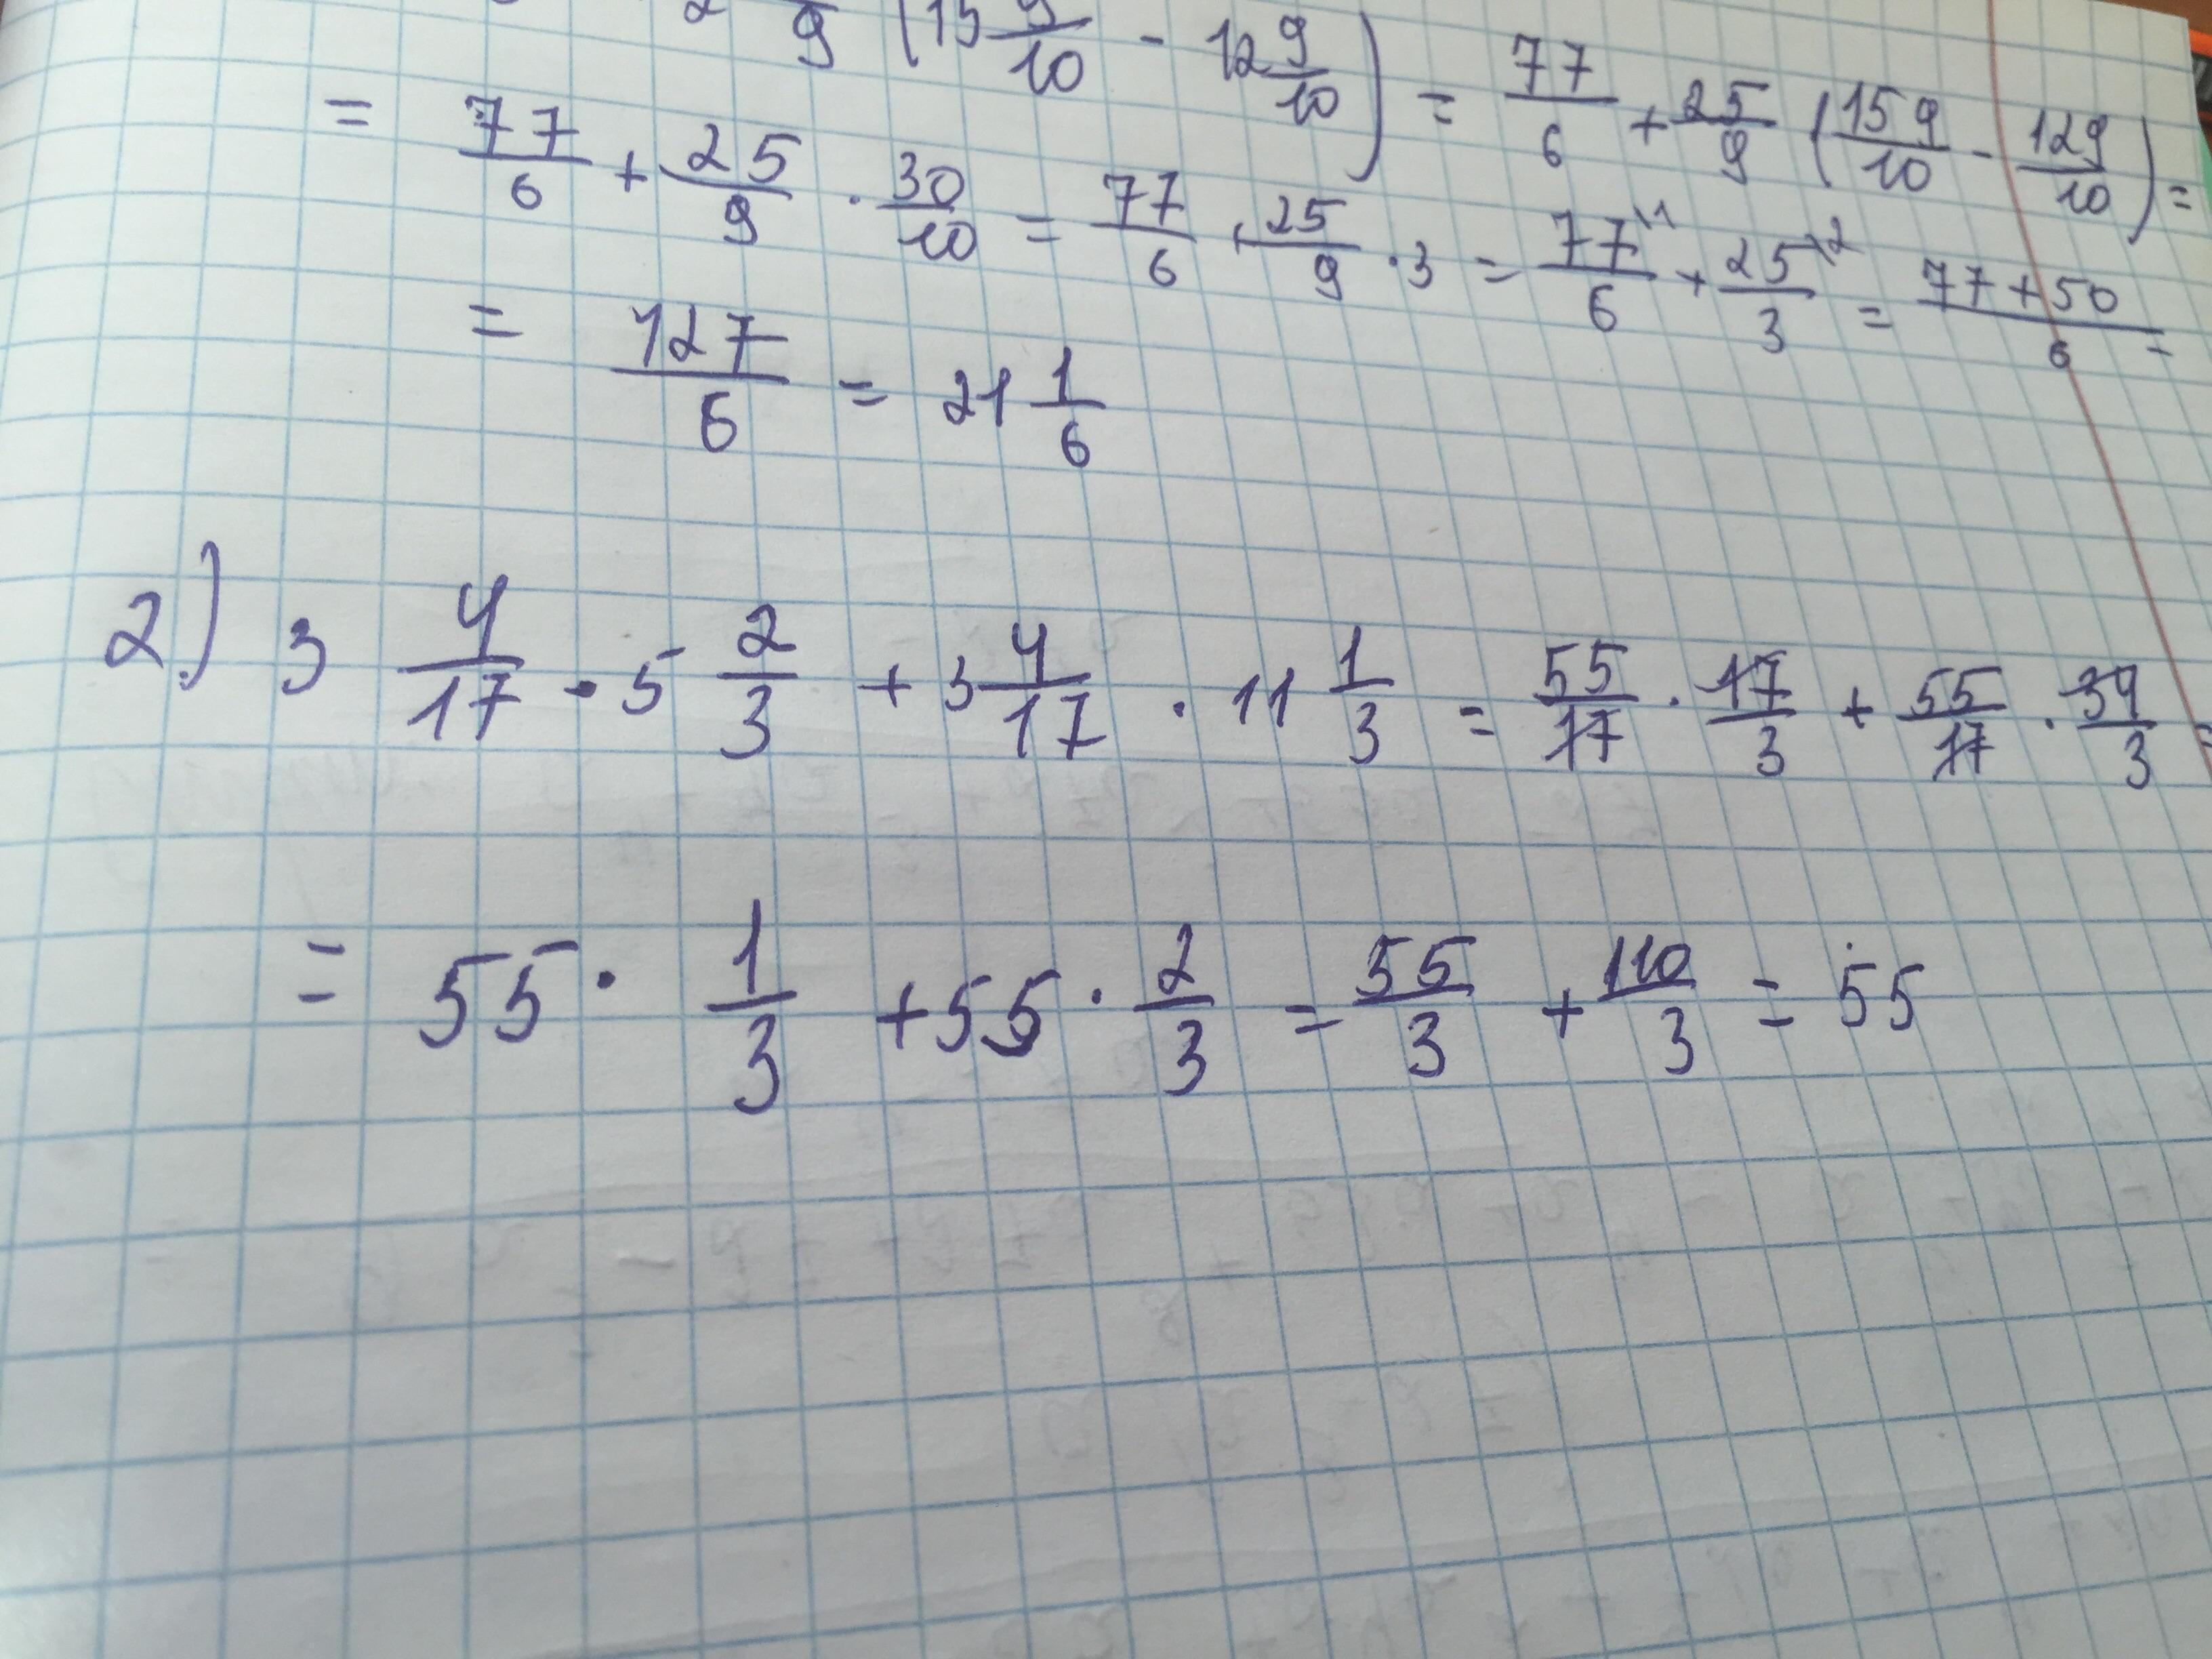 2 /9 (15 9/10 - 12 9/10) = 77/6 + 25/9 (159/10 - 129/10) =
= 77/6 + 25/9 · 30/10 = 77/6 + 25/9 · 3 = 77\1/6 + 25\2/3 = 77+50/6 =
= 127/6 = 21 1/6
2.) 3 4/17 · 5 2/3 + 3 4/17 · 11 1/3 = 55/17 · 17/3 + 55/17 · 34/3 =
= 55 · 1/3 + 55 · 2/3 = 55/3 + 110/3 = 55